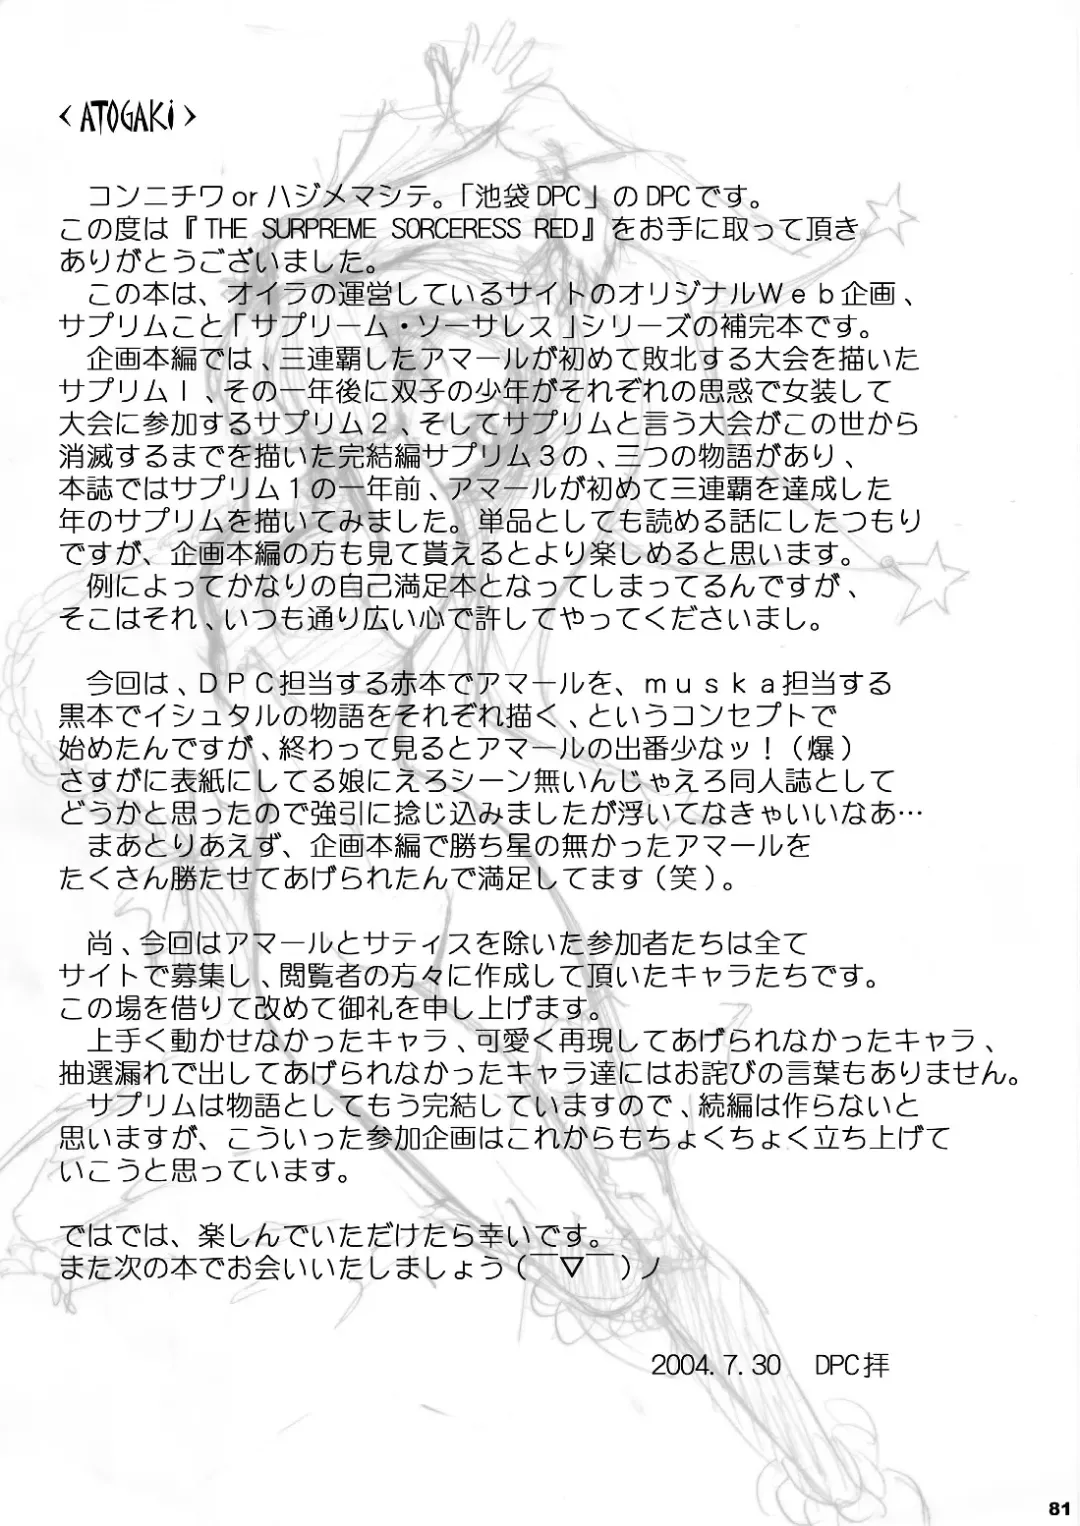 <ATOGAKi>
コンニチワorハジメマシテ。「池袋DPC」のDPCです。
この度は『THE SURPREME SORCERESS RED』をお手に取って頂き
ありがとうございました。
この本は、オイラの運営しているサイトのオリジナルWeb企画、
サプリムこと「サプリーム・ソーサレス」シリーズの補完本です。
企画本編では、三連覇したアマールが初めて敗北する大会を描いた
サプリム1、その一年後に双子の少年がそれぞれの思惑で女装して
大会に参加するサプリム2、そしてサプリムと言う大会がこの世から
消滅するまでを描いた完結編サプリム3の、三つの物語があり、
本誌ではサプリム1の一年前、アマールが初めて三連覇を達成した
年のサプリムを描いてみました。単品としても読める話にしたつもり
ですが、企画本編の方も見て貰えるとより楽しめると思います。
例によってかなりの自己満足本となってしまってるんですが、
そこはそれ、いつも通り広い心で許してやってくださいまし。
今回は、DPC担当する赤本でアマールを、muska担当する
黒本でイシュタルの物語をそれぞれ描く、というコンセプトで
始めたんですが、終わって見るとアマールの出番少なッ!(爆)
さすがに表紙にしてる娘にえろシーン無いんじゃえろ同人誌として
どうかと思ったので強引に捻じ込みましたが浮いてなきゃいいなあ…
まあとりあえず、企画本編で勝ち星の無かったアマールを
たくさん勝たせてあげられたんで満足してます(笑)。
尚、今回はアマールとサティスを除いた参加者たちは全て
サイトで募集し、閲覧者の方々に作成して頂いたキャラたちです。
この場を借りて改めて御礼を申し上げます。
上手く動かせなかったキャラ、可愛く再現してあげられなかったキャラ、
抽選漏れで出してあげられなかったキャラ達にはお詫びの言葉もありません。
サプリムは物語としてもう完結していますので、続編は作らないと
思いますが、こういった参加企画はこれからもちょくちょく立ち上げて
いこうと思っています。
ではでは、楽しんでいただけたら幸いです。
また次の本でお会いいたしましょう(￣▽￣)ノ
2004.7.30 DPC拝
81